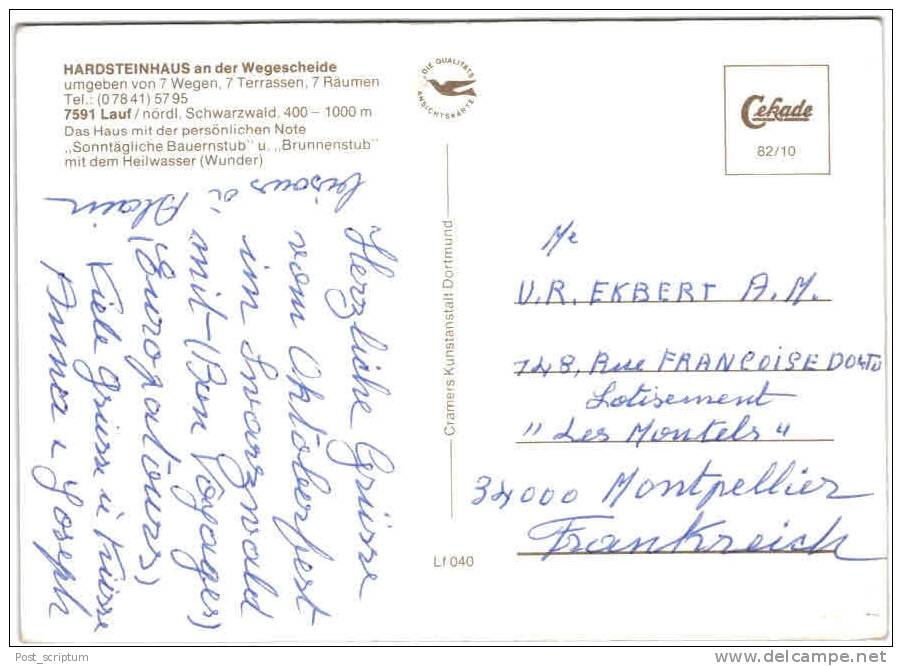 HARDSTEINHAUS an der Wegescheide
umgeben von 7 Wegen, 7 Terrassen, 7 Räumen
Tel.: (07841) 5795
7591 Lauf / nördl. Schwarzwald, 400 – 1000 m
Das Haus mit der persönlichen Note
„Sonntägliche Bauernstub" u. „Brunnenstub"
mit dem Heilwasser (Wunder)
DIE QUALITÄTS
ANSICHTSKARTE
Cekade
82/10
Herzliche Grüsse
vom Oktoberfest
im Svarzwald
mit (Bon Voyager)
(Europatours)
Viele Grüsse u Küsse
Anna u Joseph
bisous à
Alain
Cramers Kunstanstalt Dortmund
Lf 040
Me
U.R. EKBERT A.M.
748, Rue FRANÇOISE DOLTO
Lotisement
" Les Montels "
34000 Montpellier
Frankreich
Post_scriptum
delcampe.net